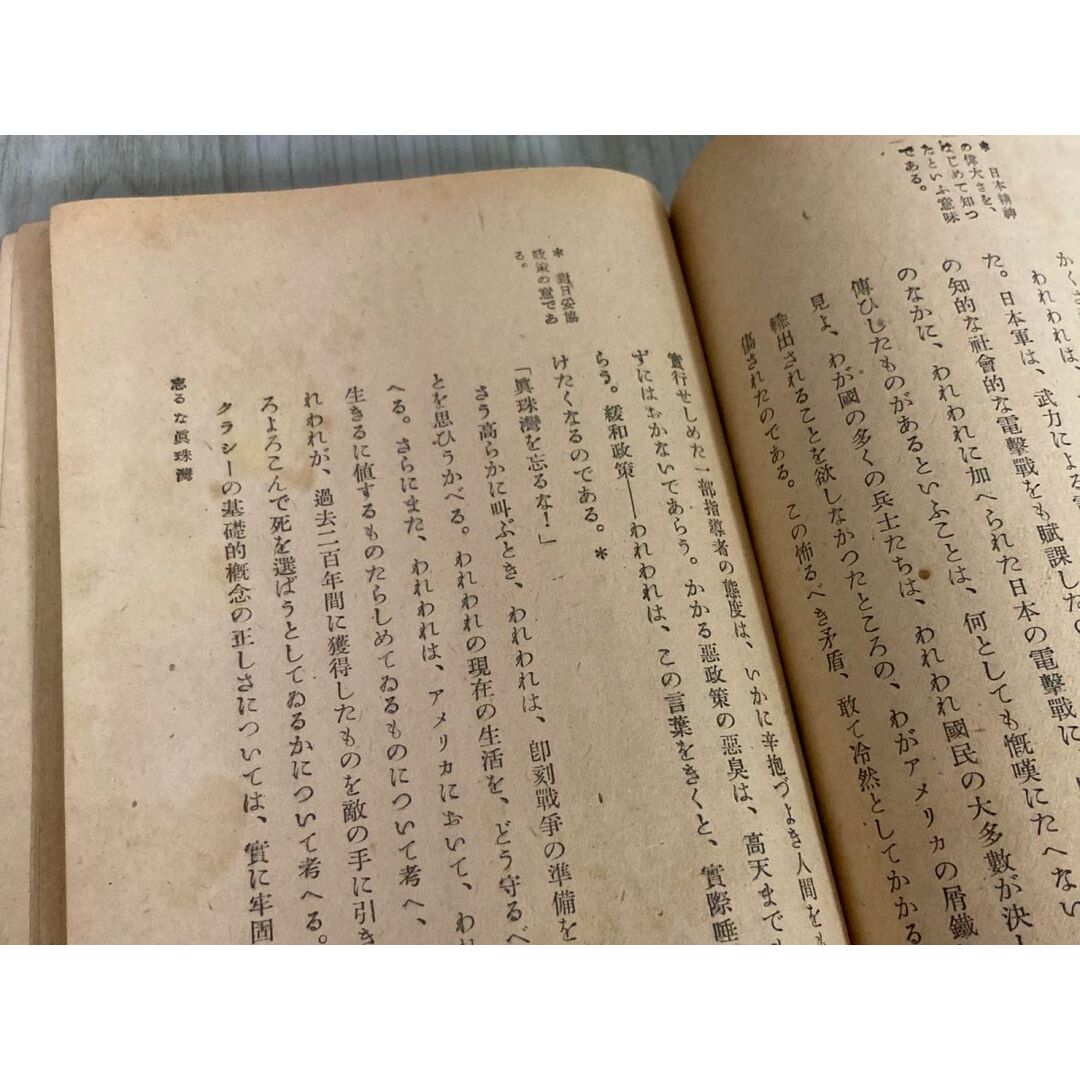 ＊　日本精神
の偉大さを、
はじめて知つ
たといふ意味
である。
かくさ
われわれは、
た。日本軍は、武力による
の知的な社會的な電撃戰をも賦課したの
のなかに、われわれに加へられた日本の電撃戰に
傳ひしたものがあるといふことは、何としても慨嘆にたへない
見よ、わが國の多くの兵士たちは、われわれ國民の大多數が決し
輸出されることを欲しなかつたところの、わがアメリカの屑鐵
傷されたのである。この怖るべき矛盾、敢て冷然としてかかる
＊　對日妥協
政策の意であ
る。
實行せしめた一部指導者の態度は、いかに辛抱づよき人間をも
ずにはおかないであらう。かかる惡政策の惡臭は、高天までも
らう。緩和政策――われわれは、この言葉をきくと、實際唾
けたくなるのである。＊
「眞珠灣を忘るな！」
さう高らかに叫ぶとき、われわれは、卽刻戰爭の準備を
とを思ひうかべる。われわれの現在の生活を、どう守るべ
へる。さらにまた、われわれは、アメリカにおいて、われ
生きるに値するものたらしめてゐるものについて考へ、
れわれが、過去二百年間に獲得したものを敵の手に引き
ろよろこんで死を選ばうとしてゐるかについて考へる。
クラシーの基礎的概念の正しさについては、實に牢固
忘るな眞珠灣